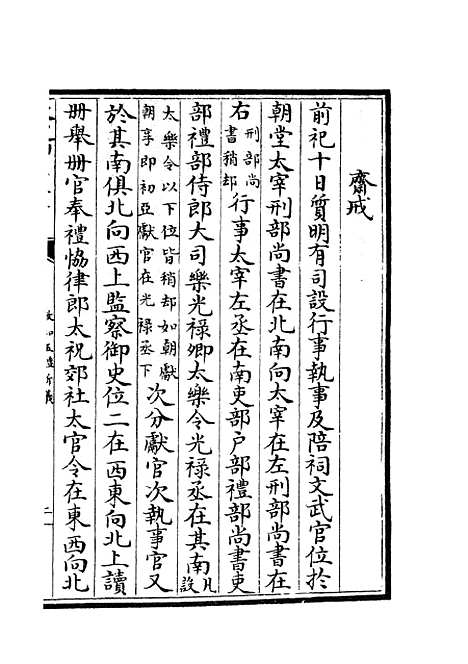 齋戒
前祀十日質明有司設行事執事及陪祠文武官位於
朝堂太宰刑部尚書在北南向太宰在左刑部尚書在
右刑部尚書稍却行事太宰左丞在南吏部户部禮部尚書吏
部禮部侍郎大司樂光禄卿太樂令光禄丞在其南凡設
太樂令以下位皆稍却如朝獻朝享即初亞獻官在光禄丞下次分獻官次執事官又
於其南俱北向西上監察御史位二在西東向北上讀
册舉册官奉禮恊律郎太祝郊社太官令在東西向北